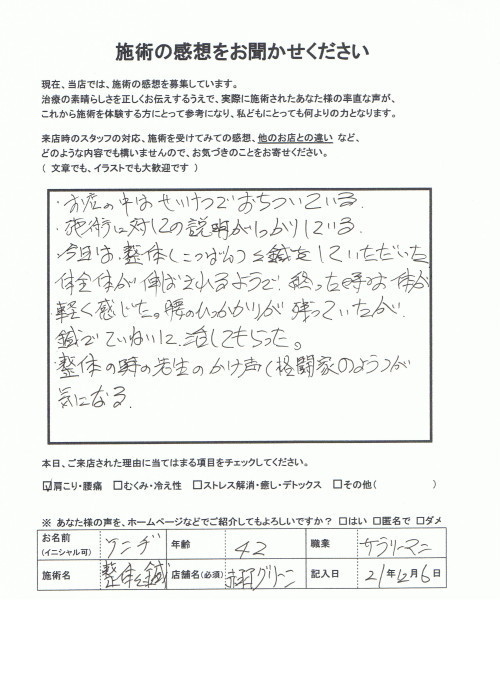 施術の感想をお聞かせください
現在、当店では、施術の感想を募集しています。
治療の素晴らしさを正しくお伝えするうえで、実際に施術されたあなた様の率直な声が、
これから施術を体験する方にとって参考になり、私どもにとっても何よりの力となります。
来店時のスタッフの対応、施術を受けてみての感想、他のお店との違い など、
どのような内容でも構いませんので、お気づきのことをお寄せください。
( 文章でも、イラストでも大歓迎です )
・お店の中はせいけつでおちついている。
・施術に対しての説明がしっかりしている。
・今日は、整体(こつばん)と鍼をしていただいた
体全体が伸ばされるようで、終った時は体が
軽く感じた。腰のひっかかりが残っていたが、
鍼でていねいに、治してもらった。
・整体の時の先生のかけ声(格闘家のようつが
気になる。
本日、ご来店された理由に当てはまる項目をチェックしてください。
☑肩こり・腰痛 □むくみ・冷え性 □ストレス解消・癒し・デトックス □その他( )
※ あなた様の声を、ホームページなどでご紹介してもよろしいですか？ □はい □匿名で □ダメ
お名前 (イニシャル可) ケンヂ 年齢 42 職業 サラリーマン
施術名 整体と鍼 店舗名(必須) グリーン 記入日 21年12月6日